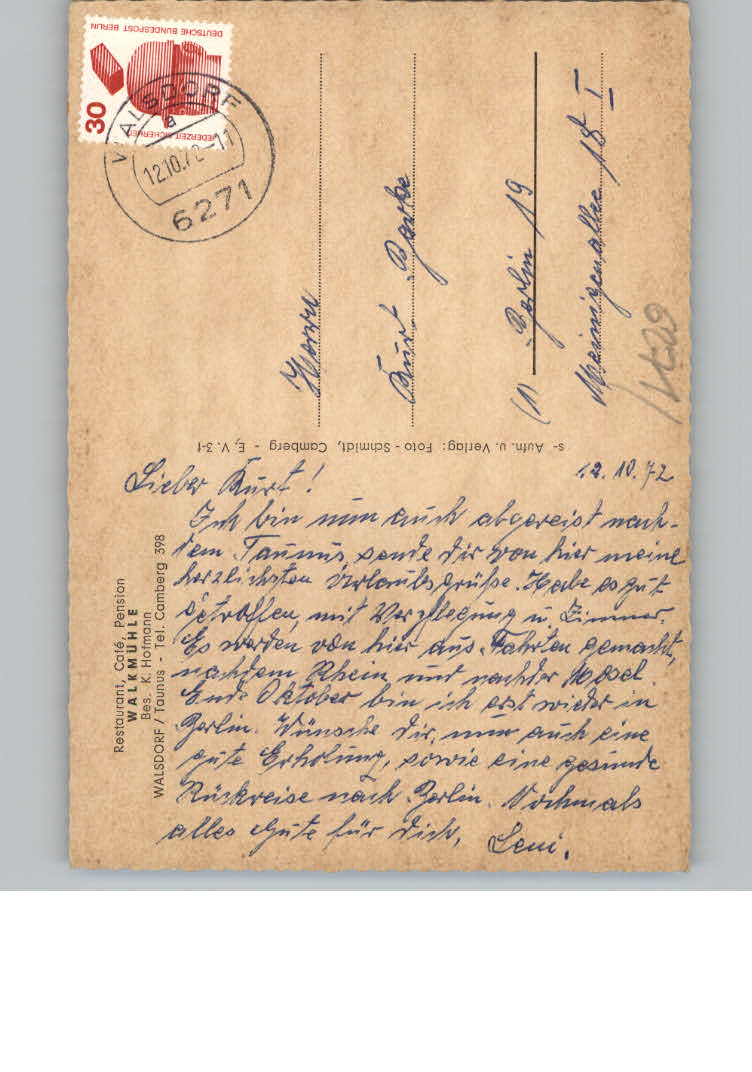 DEUTSCHE BUNDESPOST BERLIN
JEDERZEIT SICHERHEIT
30
WALSDORF
a
12.10.72-11
6271
Herrn
Kurt
(1) Berlin 19
Meiningenallee 18 I
s- Aufn. u. Verlag: Foto-Schmidt, Camberg - E, V. 3-1
Restaurant, Café, Pension
WALKMÜHLE
Bes. K. Hofmann
WALSDORF / Taunus - Tel. Camberg 398
12.10.72
Lieber Kurt!
Ich bin nun auch abgereist nach-
dem Taunus, sende dir von hier meine
herzlichsten Urlaubsgrüße. Habe es gut
getroffen, mit Verpflegung u. Zimmer.
Es werden von hier aus, Fahrten gemacht,
nachdem Rhein und nachder Mosel.
Ende Oktober bin ich erst wieder in
Berlin. Wünsche dir, nun auch eine
gute Erholung, sowie eine gesunde
Rückreise nach Berlin. Nochmals
alles Gute für Dich, Leni.